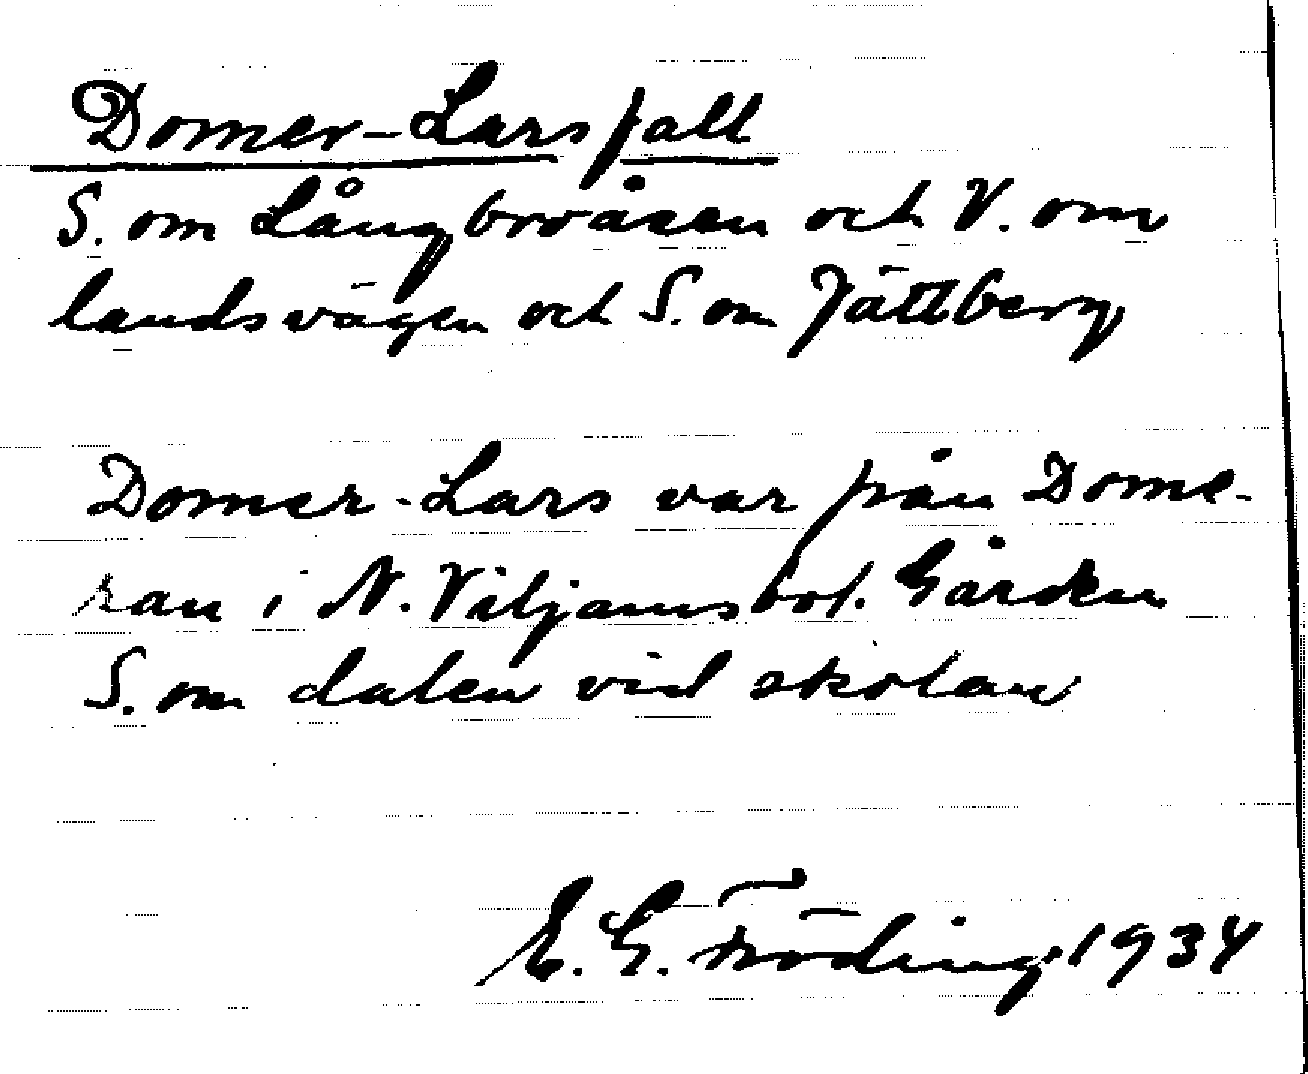 Domer-Larsfall
S. om Långbroåsen och V. om
landsvägen och S. om Jättberg
Domer-Lars var från Dome-
ran i N. Viljamsbol. Gården
S. om dalen vid skolan
E. G. Fröding 1934